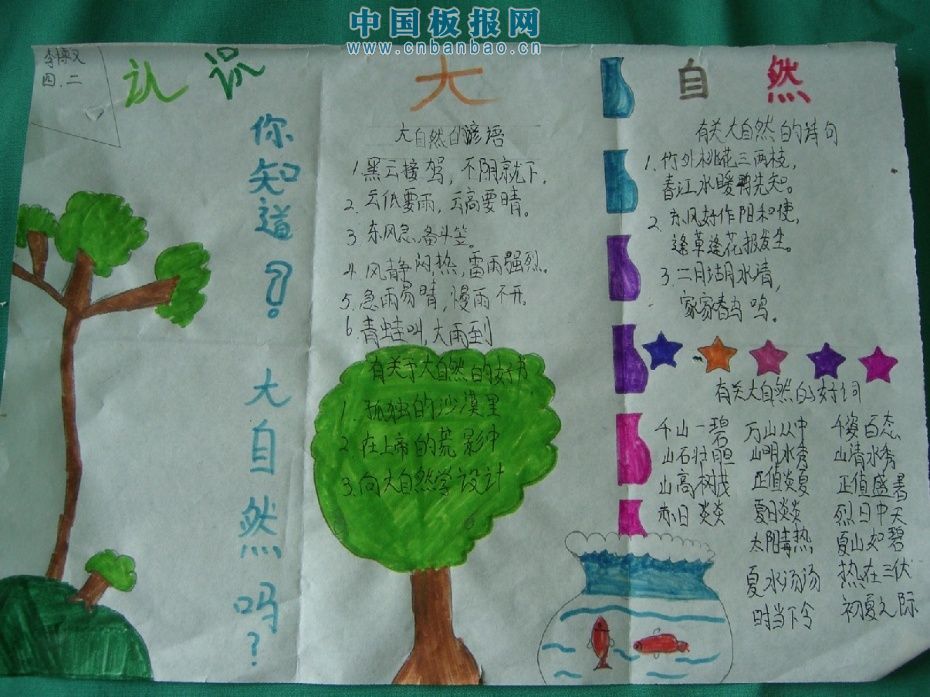 中国板报网
www.cnbanbao.cn
四.二
认识大自然
你知道?大自然吗?
大自然的谚语
1.黑云接驾，不阴就下。
2.云低要雨，云高要晴。
3.东风急，备斗笠。
4.风静闷热，雷雨强烈。
5.急雨易晴，漫雨不开。
6.青蛙叫，大雨到
有关于大自然的好书
1.孤独的沙漠里
2.在上帝的荒影中
3.向大自然学设计
有关大自然的诗句
1.竹外桃花三两枝，
春江水暖鸭先知。
2.东风好作阳和使，
逢草逢花报发生。
3.二月湖水清，
家家春鸟鸣。
有关大自然的好词
千山一碧 万山丛中 千姿百态
山石壮胆 山明水秀 山清水秀
山高树茂 正值炎夏 正值盛暑
赤日炎炎 夏日炎炎 烈日中天
太阳毒热 夏山如碧
夏水汤汤 热在三伏
时当下令 初夏之际